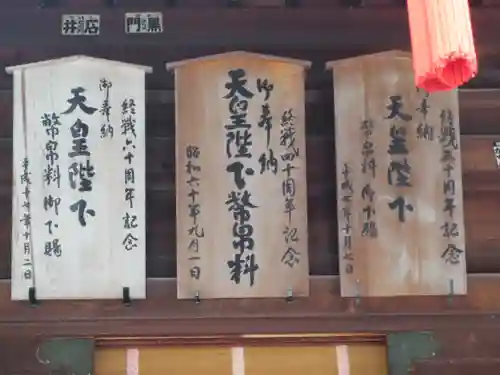 井店
門黒
御奉納
終戦六十周年記念
天皇陛下
幣帛料御下賜
平成十七年十月二日
御奉納
終戦四十周年記念
天皇陛下幣帛料
昭和六十年九月一日
御奉納
終戦五十周年記念
天皇陛下
幣帛料御下賜